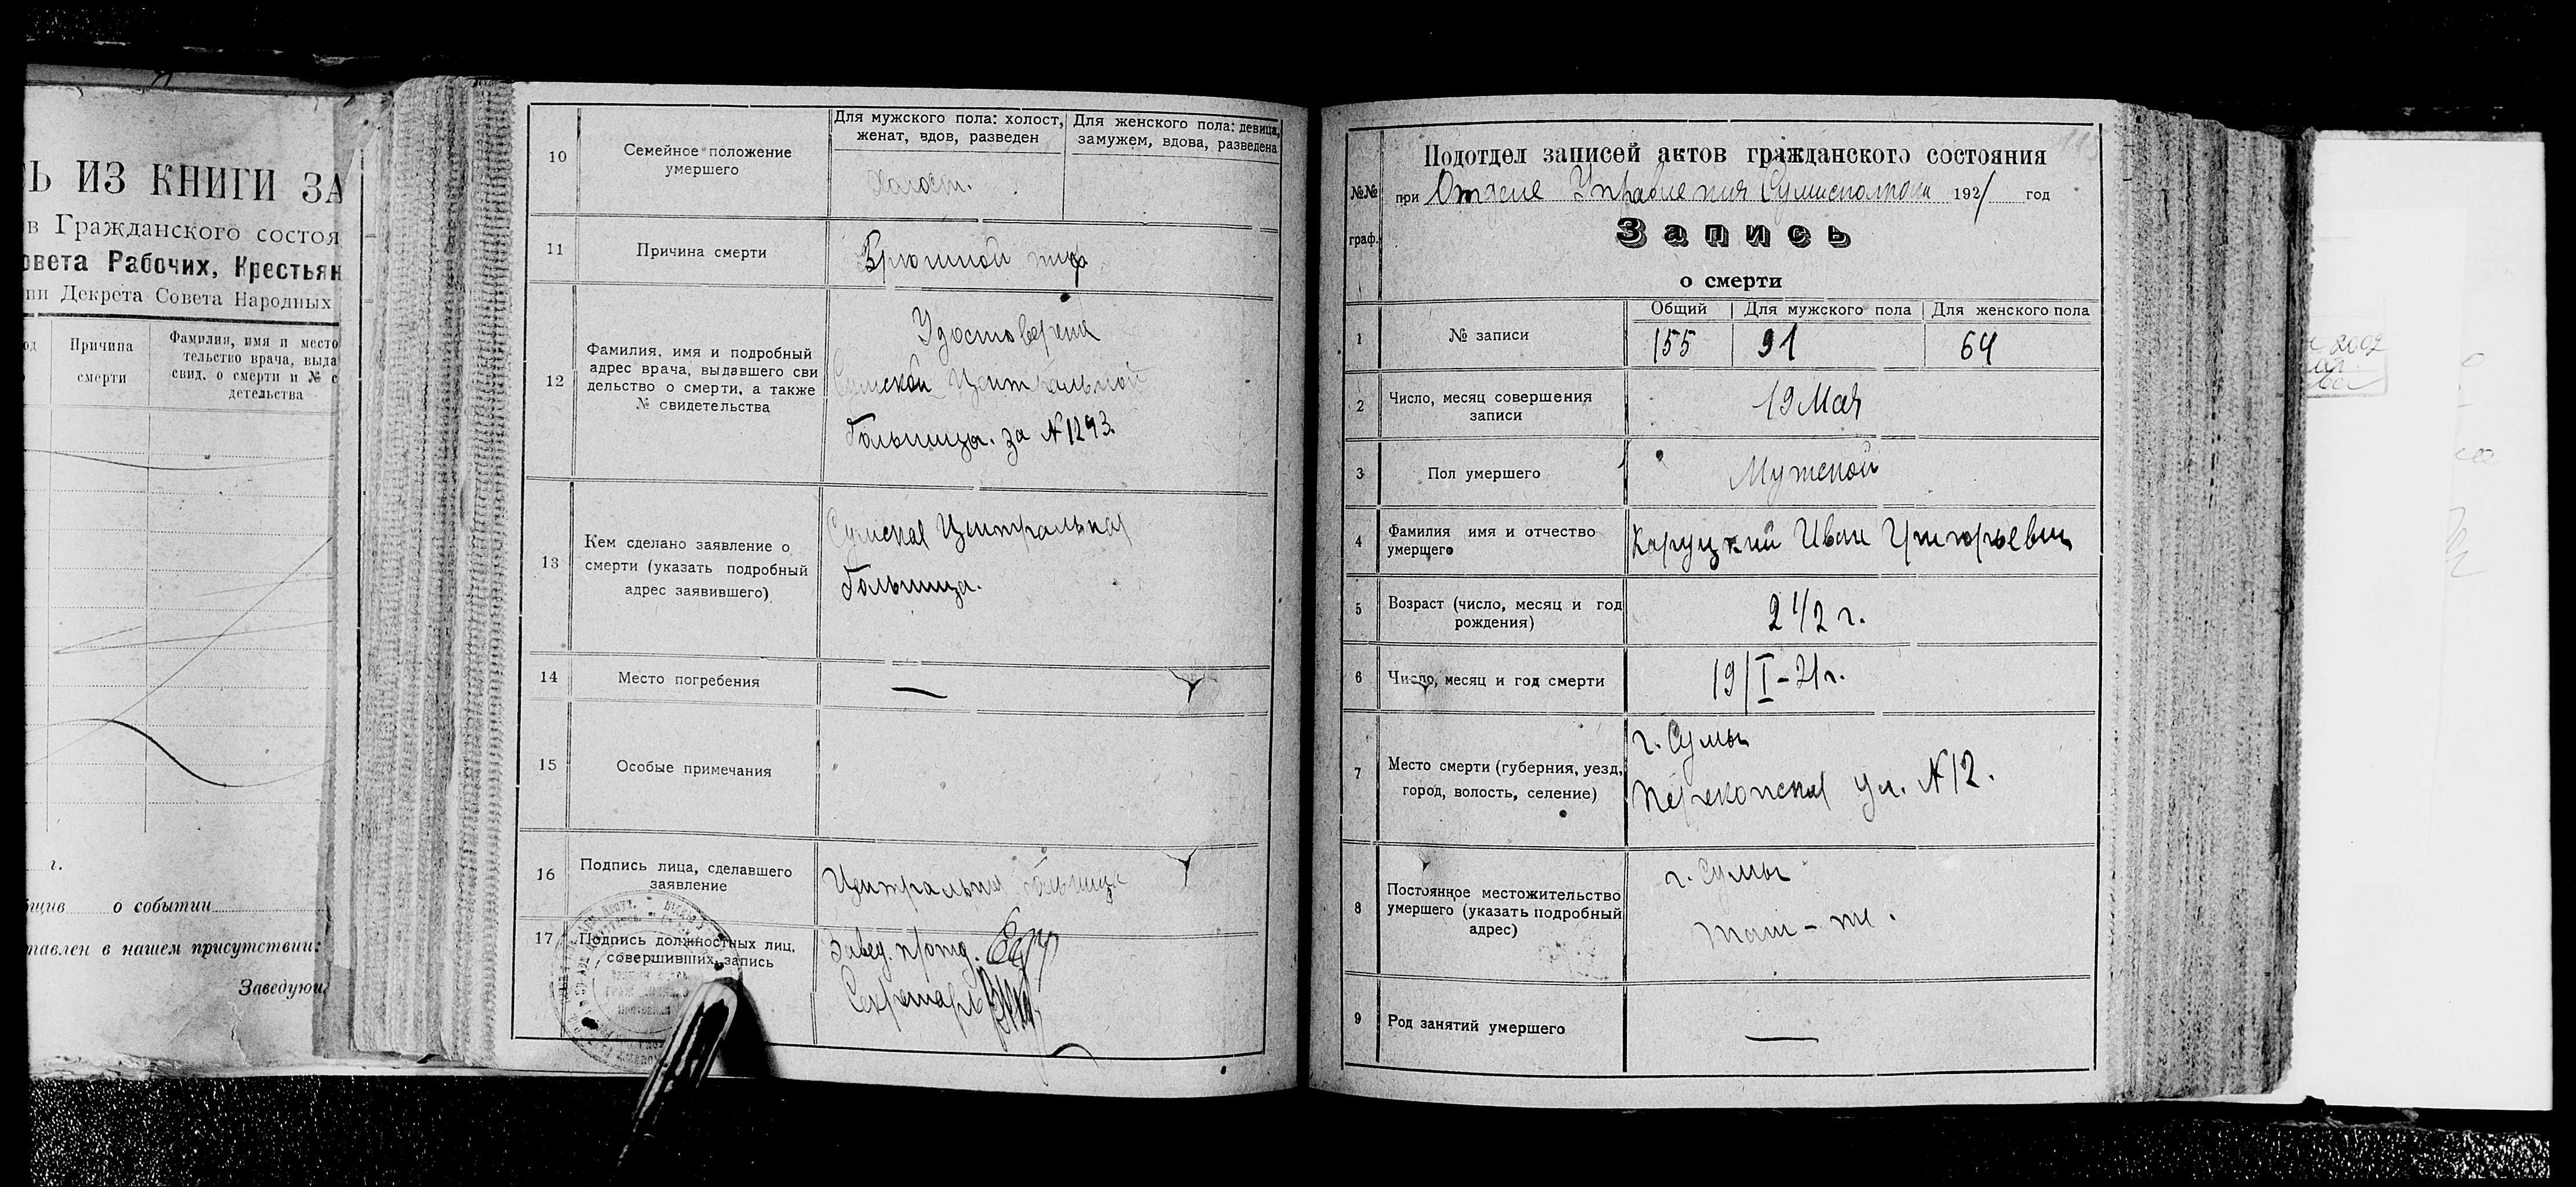 Ь ИЗ КНИГИ ЗА
в Гражданского состоя
овета Рабочих, Крестьян
ии Декрета Совета Народных
Причина
смерти
Фамилия, имя и место
тельство врача, выда
свид. о смерти и № с
детельства
г.
бщив о событии
тавлен в нашем присутствии:
Заведующ
10
Семейное положение
умершего
Для мужского пола: холост,
женат, вдов, разведен
Для женского пола: девица,
замужем, вдова, разведена
Холост.
11
Причина смерти
Брюшной тиф
12
Фамилия, имя и подробный
адрес врача, выдавшего сви
дельство о смерти, а также
№ свидетельства
Удостоверена
Сумской Центральной
больницы. за № 1293.
13
Кем сделано заявление о
смерти (указать подробный
адрес заявившего)
Сумская Центральная
больница.
14
Место погребения
—
15
Особые примечания
16
Подпись лица, сделавшего
заявление
Центральная больница
17
Подпись должностных лиц,
совершивших запись
Завед. п/отд.
Секретарь
№№
граф.
Подотдел записей актов гражданского состояния
при Отделе Управления Сумисполкома 1921 год
Запись
о смерти
1
№ записи
Общий
Для мужского пола
Для женского пола
155
91
64
2
Число, месяц совершения
записи
19 Мая
3
Пол умершего
Мужской
4
Фамилия имя и отчество
умерщего
Каруцкий Иван Григорьевич
5
Возраст (число, месяц и год
рождения)
2 1/2 г.
6
Число, месяц и год смерти
19/I-21 г.
7
Место смерти (губерния, уезд,
город, волость, селение)
г. Сумы
Перекопская ул. № 12.
8
Постоянное местожительство
умершего (указать подробный
адрес)
г. Сумы
там-же.
9
Род занятий умершего
—
2002